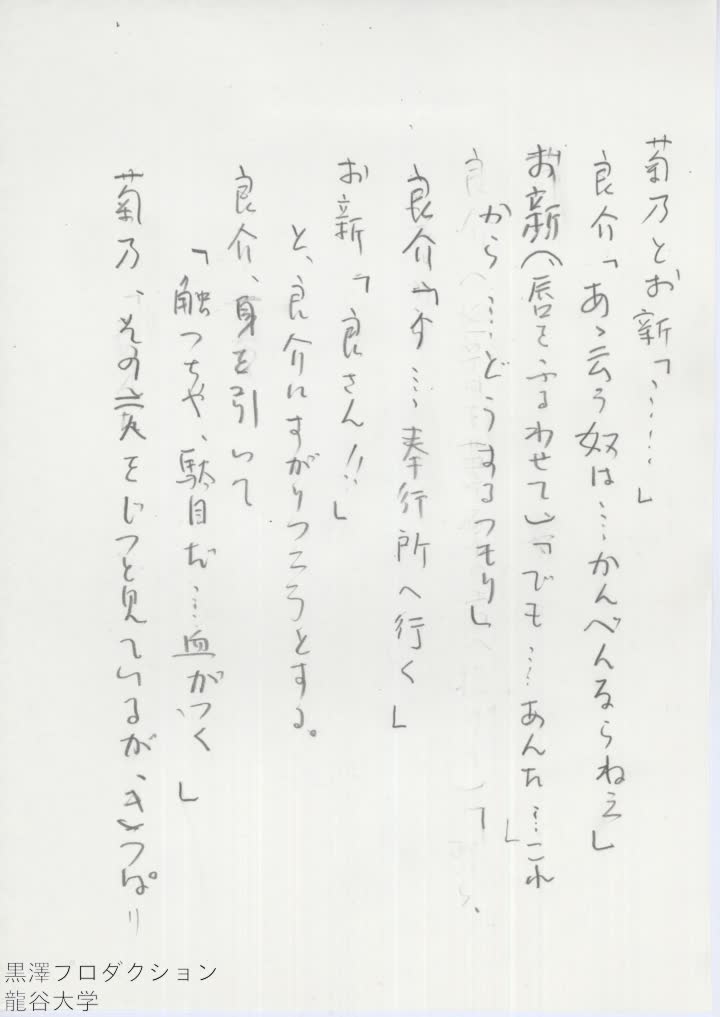 菊乃とお新「……」
良介「あゝ云う奴は…かんべんならねえ」
お新（唇をふるわせて）「でも…あんた…これ
から…どうするつもり」
良介「今…奉行所へ行く」
お新「良さん!!」
と、良介にすがりつこうとする。
良介、身を引いて
「触っちゃ、駄目だ…血がつく」
菊乃、その二人をじっと見ているが、きっぱり
黒澤プロダクション
龍谷大学